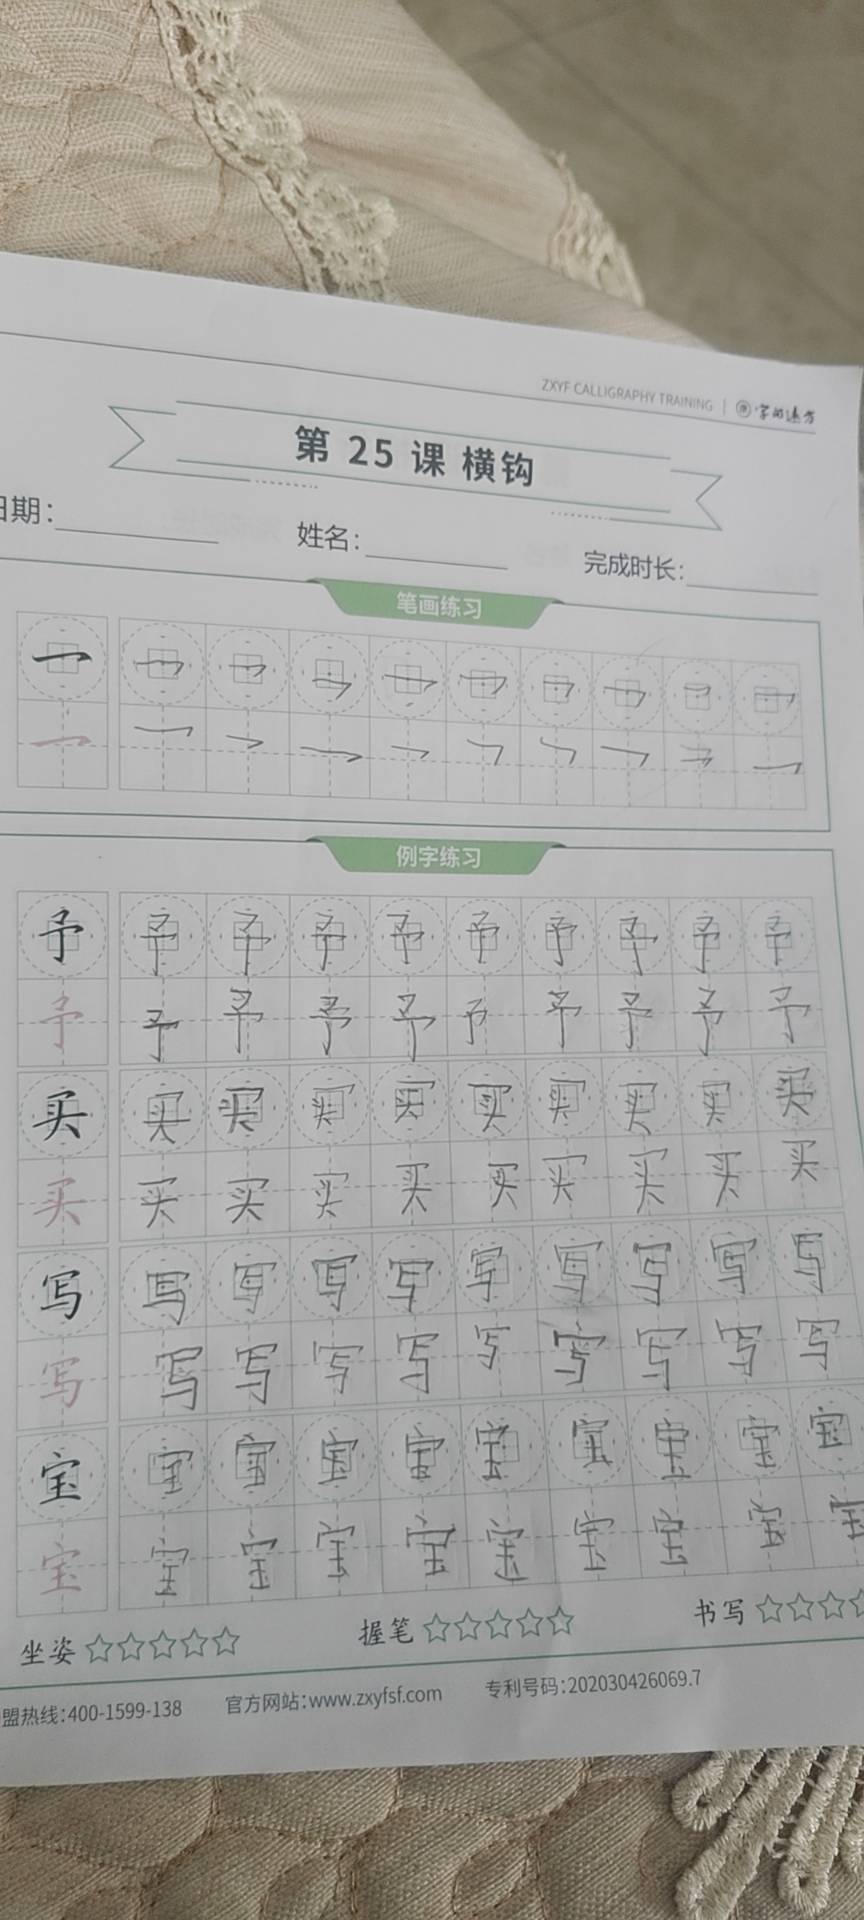 ZXYF CALLIGRAPHY TRAINING | 字的远方
第 25 课 横钩
日期：
姓名：
完成时长：
笔画练习
例字练习
予 予 予 予 予 予 予 予 予 予
予 予 予 予 予 予 予 予 予 予
买 买 买 买 买 买 买 买 买 买
买 买 买 买 买 买 买 买 买 买
写 写 写 写 写 写 写 写 写 写
写 写 写 写 写 写 写 写 写 写
宝 宝 宝 宝 宝 宝 宝 宝 宝 宝
宝 宝 宝 宝 宝 宝 宝 宝 宝 宝
坐姿 ☆☆☆☆☆ 握笔 ☆☆☆☆☆ 书写 ☆☆☆☆
盟热线：400-1599-138 官方网站：www.zxyfsf.com 专利号码：202030426069.7